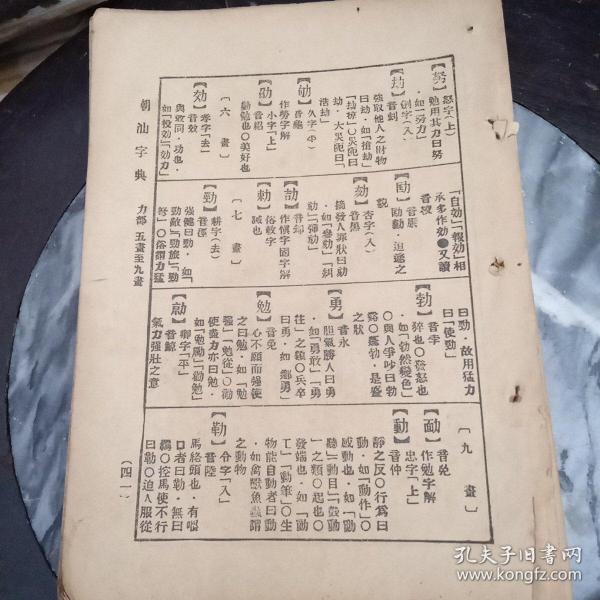 【努】
怒字(上)
勉用其力曰努
如「努力」
【劫】
劍字(入)
音刦
強取他人之財物
曰劫·如「搶劫」
「劫掠」○災阨曰
劫·大災阨曰「
浩劫」
【劬】
作勞字解
【劭】
小字「上」
音紹
勸勉也○美好也
〔六畫〕
【効】
孝字「去」
音效
與效同·功也·
如「投効」「効力」
「自効」「報効」相
承多作効●又讀
【劻】
劻勷·迫遽之
貌
【劾】
音核
摘發人罪狀曰劾
·如「參劾」「糾
劾」「彈劾」
【劼】
作愼字固字解
【勅】
俗敕字
誡也
〔七畫〕
【勁】
耕字(去)
強健曰勁·如「
勁敵」「勁旅」「勁
弩」○俗謂力猛
曰勁·故用猛力
曰「使勁」
【勃】
音孛
猝也○發怒也
·如「勃然變色」
○與人爭吵曰勃
谿○蓬勃·是盛
之狀
【勇】
音永
胆氣勝人曰勇
·如「勇敢」「勇
往」之類○兵卒
曰勇·如「鄉勇」
【勉】
音免
心不願而強使
之曰勉·如「勉
強」「勉從」○勸
使盡力亦曰勉·
如「勉勵」「勸勉」
【勍】
音鯨
氣力强壯之意
〔九畫〕
【勔】
音免
作勉字解
【動】
忠字「上」
音仲
靜之反○行爲曰
動·如「動作」○
感動也·如「動
聽」「動目」「鼓動
」之類○起也○
發端也·如「動
工」「動筆」○生
物能自動者曰動
·如禽獸魚蟲謂
之動物
【勒】
音陸
馬絡頭也·有啣
口者曰勒·無曰
羈○控馬使不行
曰勒○迫人服從
潮汕字典 力部 五畫至九畫
(四一)
孔夫子旧书网
www.kongfz.com